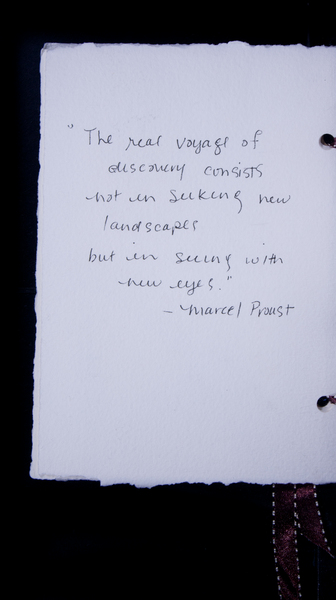 "The real voyage of
discovery consists
not in seeking new
landscapes
but in seeing with
new eyes."
- Marcel Proust